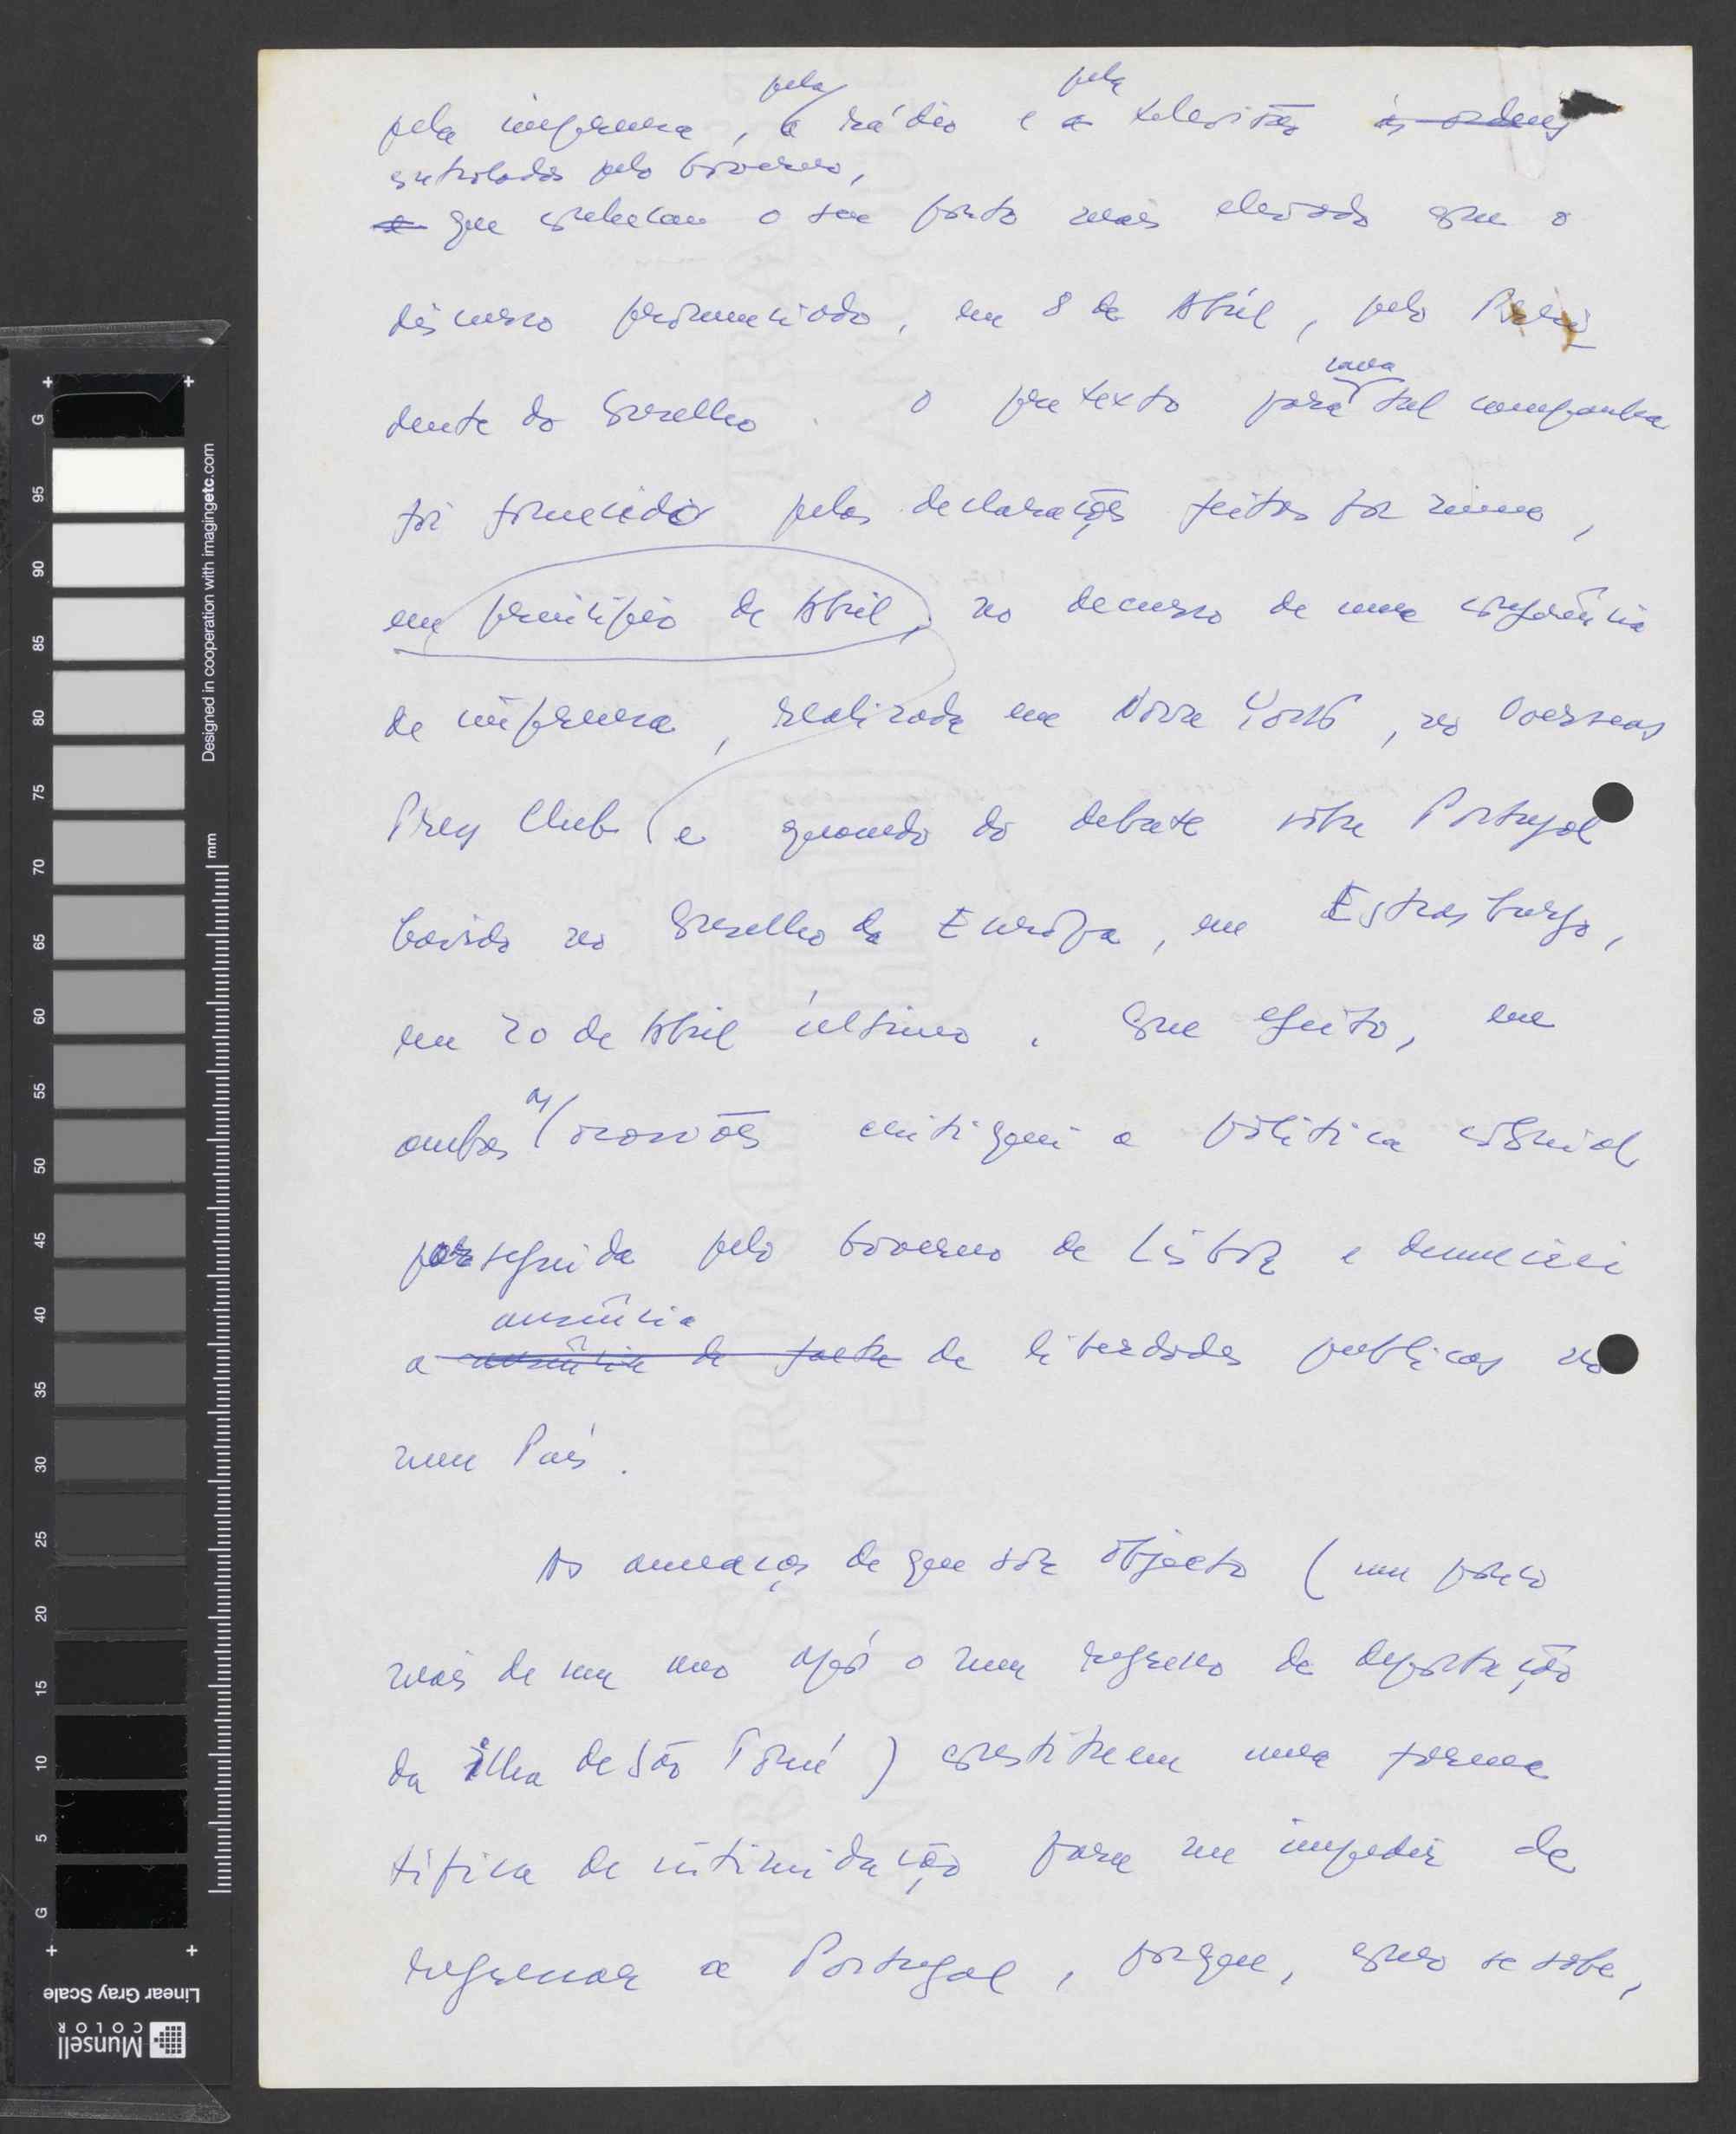 pela pela
pela imprensa, a rádio e a televisão às ordens
controlados pelo Governo,
e que conheceu o seu ponto mais elevado com o
discurso pronunciado, em 8 de Abril, pelo Presi
dente do Conselho. O pretexto para uma tal campanha
foi fornecido pelas declarações feitas por mim,
em princípio de Abril, no decurso de uma conferência
de imprensa, realizada em Nova York, no Overseas
Press Club (e quando do debate sôbre Portugal
havido no Conselho da Európa, em Estrasburgo,
em 20 de Abril último. Com efeito, em
ambas as ocasiões critiquei a política colonial
perseguida pelo Governo de Lisboa e denunciei
ausência
a ausência de facto de liberdades publicas no
meu País.
As ameaças de que sou objecto (um pouco
mais de um ano após o meu regresso da deportação
da ilha de São Tomé) constituem uma forma
típica de intimidação para me impedir de
regressar a Portugal, porque, como se sabe,
G 95 90 85 80 75 70 65 60 55 50 45 40 35 30 25 20 15 10 5 G
Designed in cooperation with imagingetc.com
mm
Linear Gray Scale
Munsell
COLOR